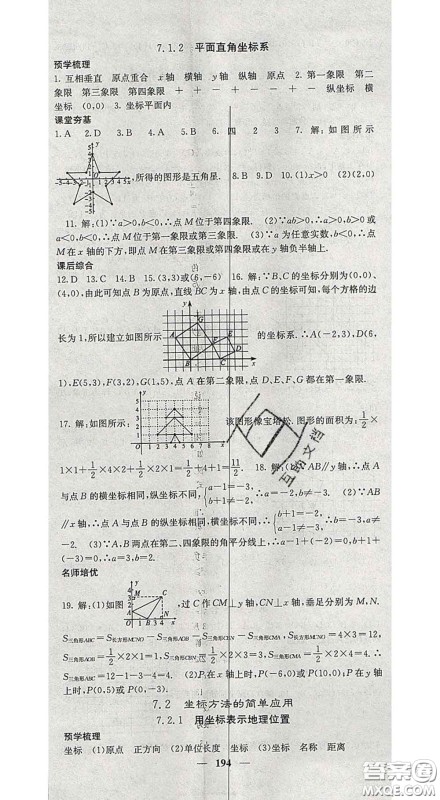 7.1.2 平面直角坐标系
预学梳理
1. 互相垂直 原点重合 x轴 横轴 y轴 纵轴 原点 2. 第一象限 第二
象限 第三象限 第四象限 + + − + − − + − 纵坐标 横
坐标 (0,0) 3. 坐标平面内
课堂夯基
1. A 2. D 3. B 4. A 5. B 6. 四 2 3 7. 解:如图所示
,所得的图形是五角星. 8. B 9. D 10. (1)x>0 (2)(2,0)
11. 解:(1)∵a>0,b<0,∴点M位于第四象限. (2)∵ab>0,∴a>0,b>0或
a<0,b<0,∴点M位于第一象限或第三象限. (3)∵a为任意实数,b<0,∴点
M在x轴的下方,即点M在第三象限或第四象限或在y轴负半轴上.
课后综合
12. D 13. C 14. B 15. (3,3)或(6,−6) 16. 解:∵B,C的坐标分别为(0,0)、
(4,0),由此可知点B为原点,直线BC为x轴,由点C的坐标可知,每个方格的边
长为1,所以建立如图所示的坐标系. ∴A(−2,3),D(6,
1),E(5,3),F(3,2),G(1,5),点A在第二象限,点D,E,F,G都在第一象限.
17. 解:如图所示: 该图形像宝塔松. 图形的面积为:1/2×
1×1+1/2×4×2+1/2×2×1=1/2+4+1=11/2. 18. 解:(1)∵AB∥y轴,∴点A
与点B的横坐标相同,纵坐标不同,∴{a−1=−3, b+1≠−2, ∴a=−2,b≠−3. (2)∵AB
∥x轴,∴点A与点B的纵坐标相同,横坐标不同,∴{b+1=−2, a−1≠−3, ∴b=−3,a≠
−2. (3)∵A、B两点在第二、四象限的角平分线上,∴a−1+(−2)=0,b+1
+(−3)=0,∴a=3,b=2.
名师培优
19. 解:(1)如图 ,过C作CM⊥y轴,CN⊥x轴,垂足分别为M、N.
S三角形ABC=S长方形MCNO−S三角形AOB−S三角形CBN−S三角形CMA,S长方形MCNO=4×3=12,
S三角形AOB=1/2×2×1=1,S三角形CBN=1/2×2×3=3,S三角形CMA=1/2×2×4=4,
S三角形ABC=12−1−3−4=4. (2)P在x轴上时,P(−6,0)或P(10,0);P在y轴
上时,P(0,5)或P(0,−3).
7.2 坐标方法的简单应用
7.2.1 用坐标表示地理位置
预学梳理
坐标 (1)原点 正方向 (2)单位长度 坐标 (3)坐标 名称 距离
194
互助文档
答案圈
MXQE.COM